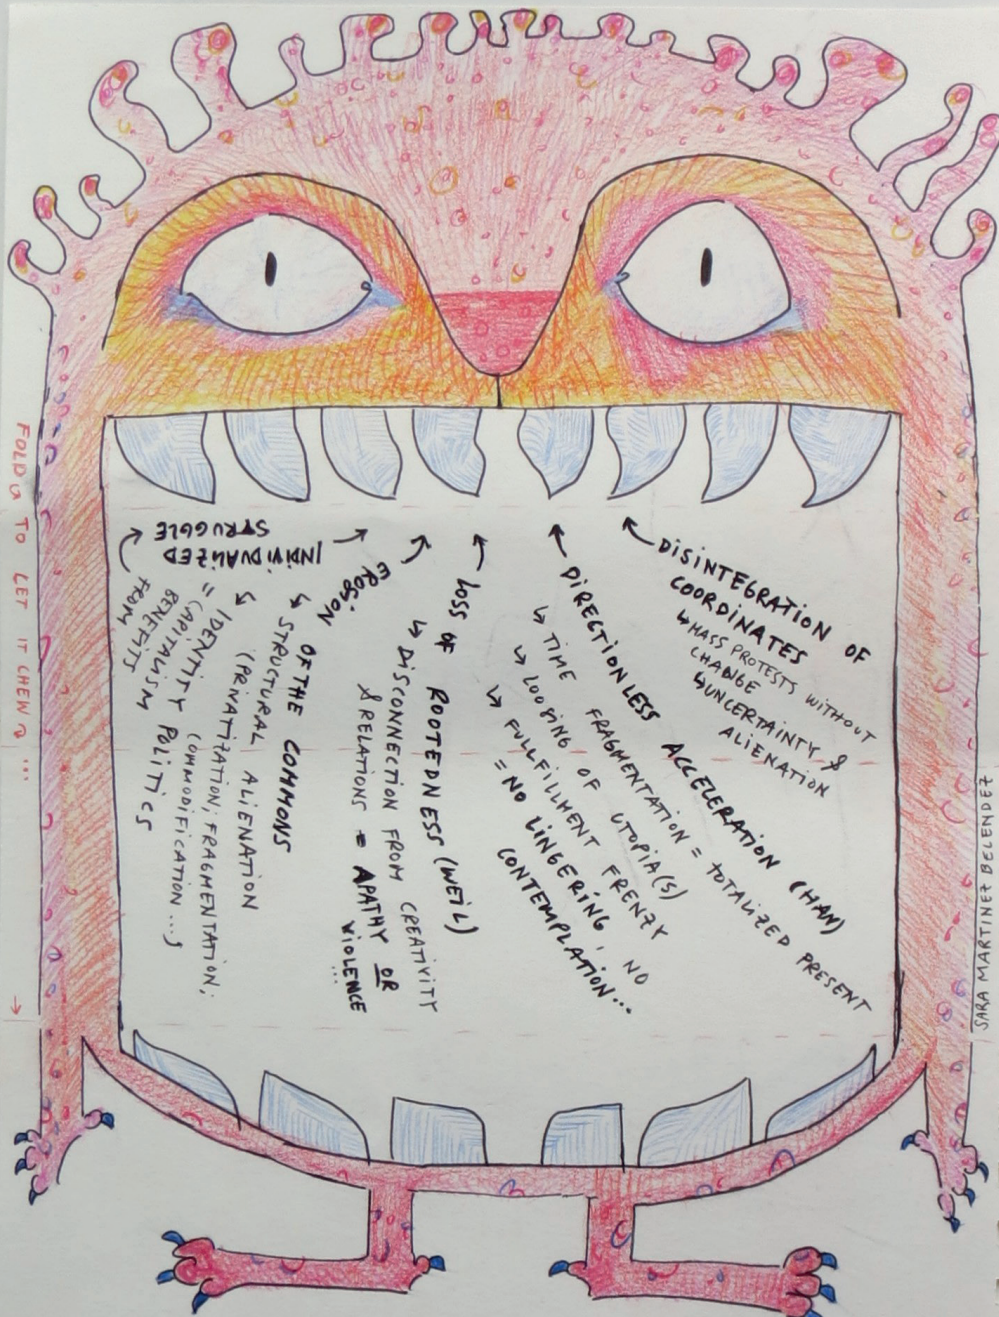 FOLD TO LET IT CHEW ...
INDIVIDUALIZED
STRUGGLE
BENEFITS
FROM
= CAPITALISM
↳ IDENTITY POLITICS
↳ STRUCTURAL ALIENATION
(PRIVATIZATION; FRAGMENTATION;
COMMODIFICATION ...)
EROSION
OF THE COMMONS
LOSS OF ROOTEDNESS (WEIL)
↳ DISCONNECTION FROM CREATIVITY
& RELATIONS = APATHY OR
VIOLENCE
...
DIRECTIONLESS ACCELERATION (HAN)
↳ TIME FRAGMENTATION = TOTALIZED PRESENT
↳ LOOSING OF UTOPIA(S)
↳ FULLFILLMENT FRENZY
= NO LINGERING, NO
CONTEMPLATION...
DISINTEGRATION OF
COORDINATES
↳ MASS PROTESTS WITHOUT
CHANGE
↳ UNCERTAINTY &
ALIENATION
SARA MARTINEZ BELENDEZ